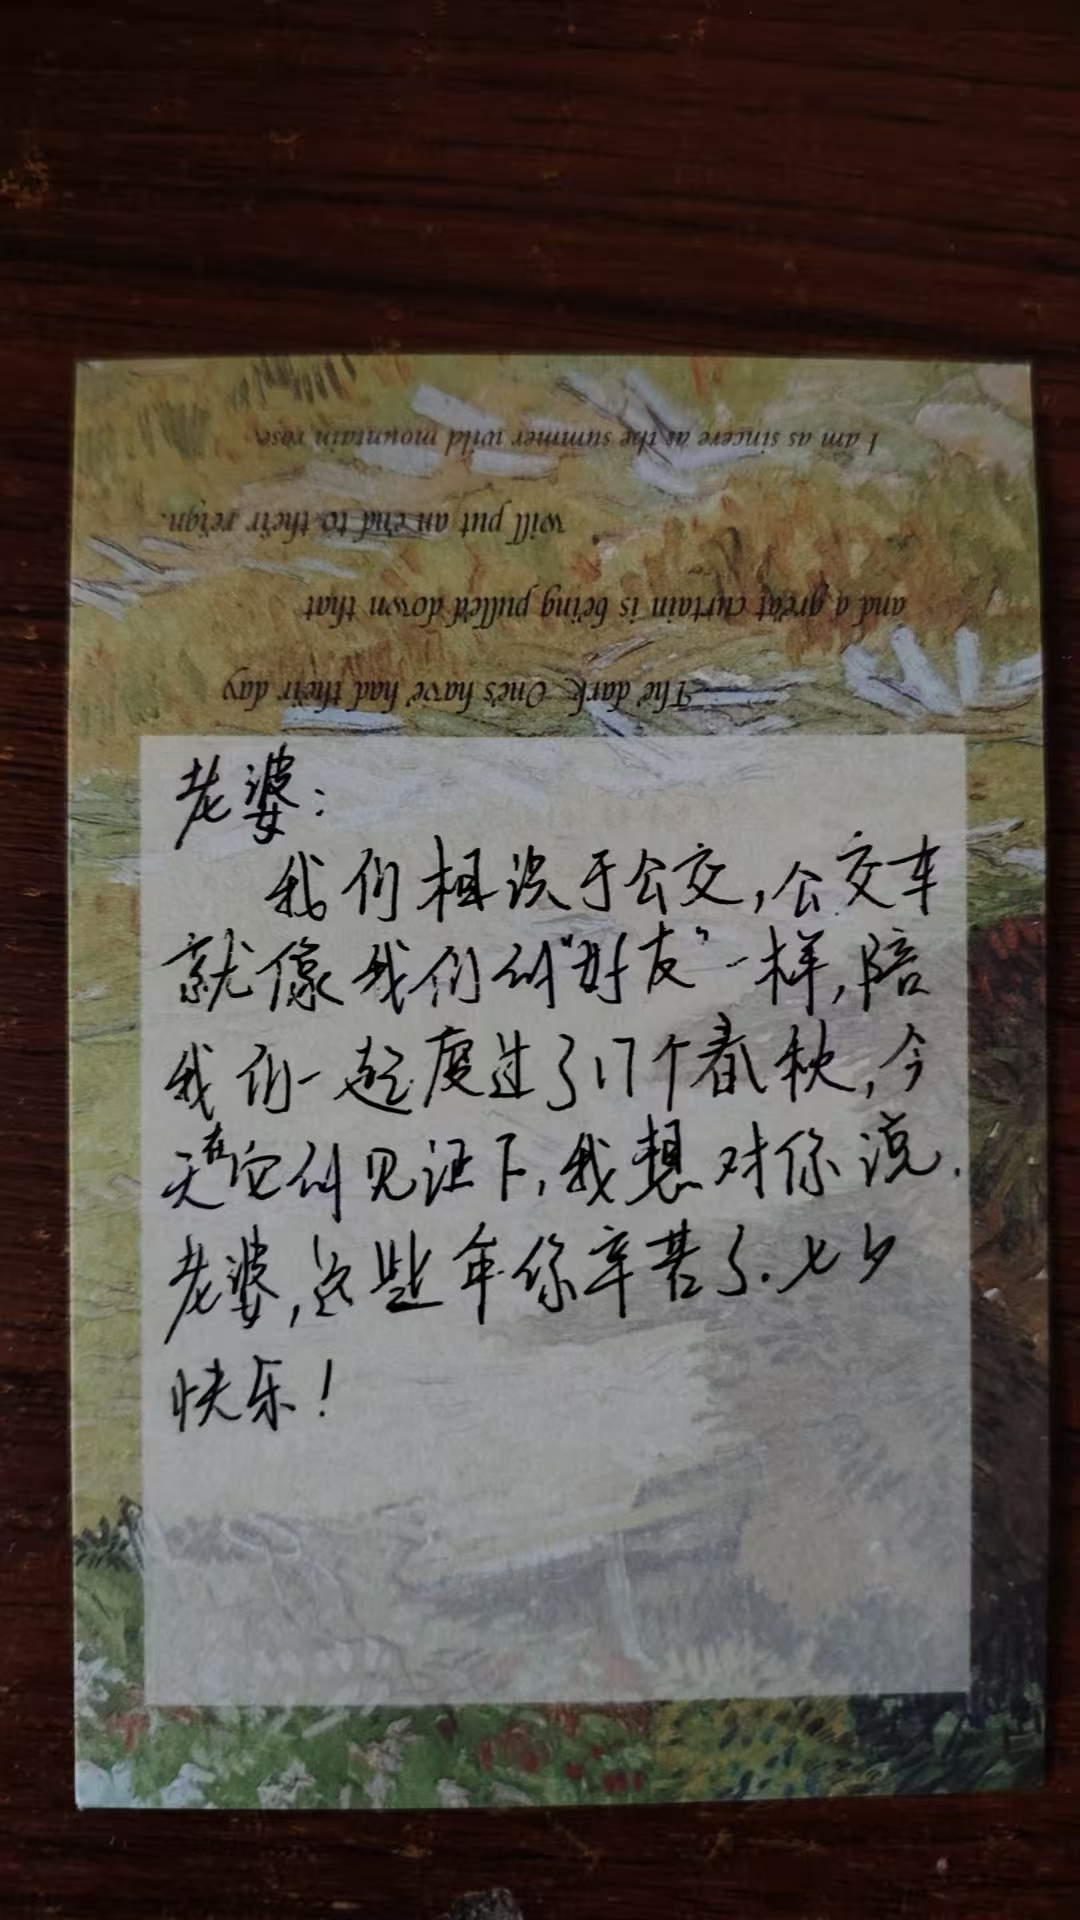 I am as sincere as the summer wild mountain rose.
will put an end to their reign.
and a great curtain is being pulled down that
The dark Ones have had their day
老婆:
我们相识于公交,公交车
就像我们的“好友”一样,陪
我们一起度过了17个春秋,今
天在它的见证下,我想对你说.
老婆,这些年你辛苦了.七夕
快乐!